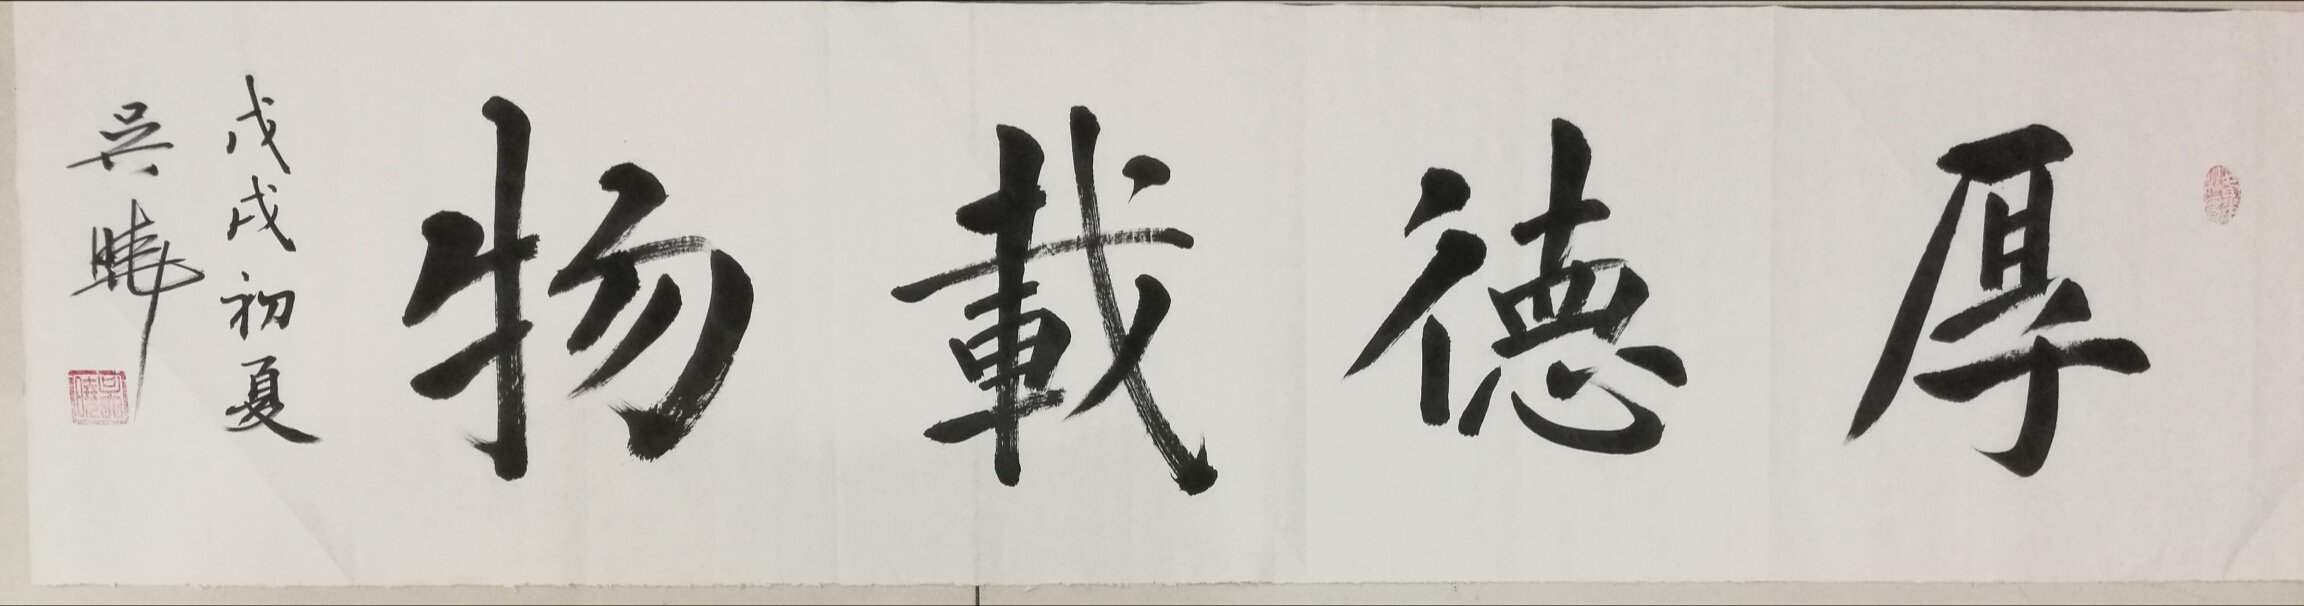 厚德載物
戊戌初夏
吴曉